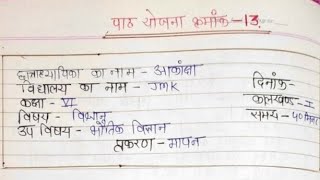 पाठ योजना क्रमांक-13.
छात्राध्यापिका का नाम - आकांक्षा
विद्यालय का नाम - JMK
दिनांक-
कक्षा - VI
कालखण्ड - I
विषय - विज्ञान
समय - 40 मिनट
उप विषय - भौतिक विज्ञान
प्रकरण - मापन